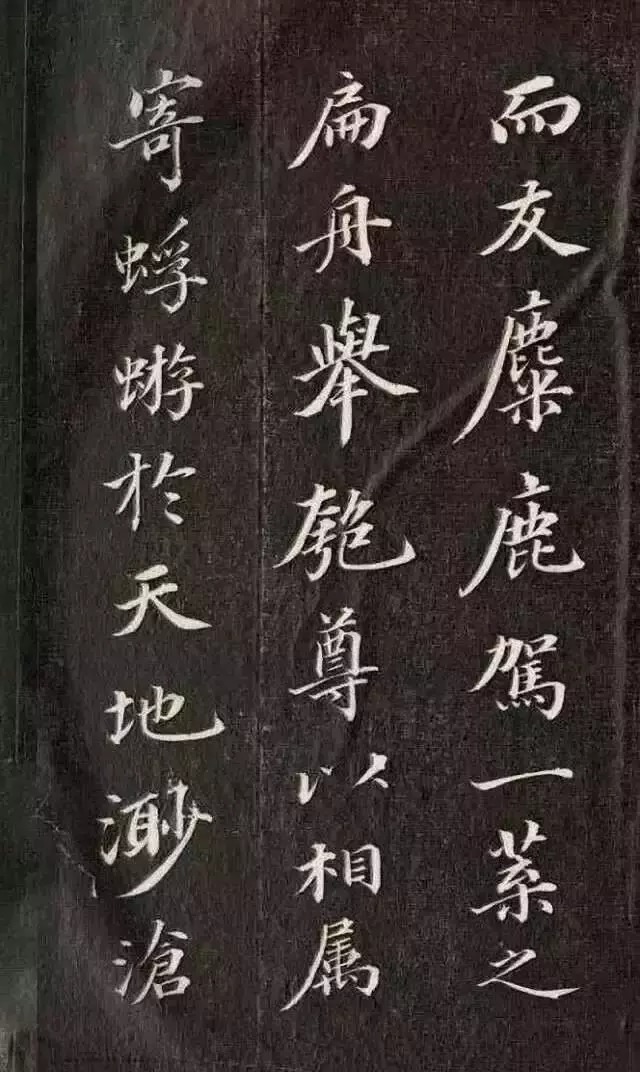 而友麋鹿駕一葉之
扁舟舉匏尊以相属
寄蜉蝣於天地渺滄